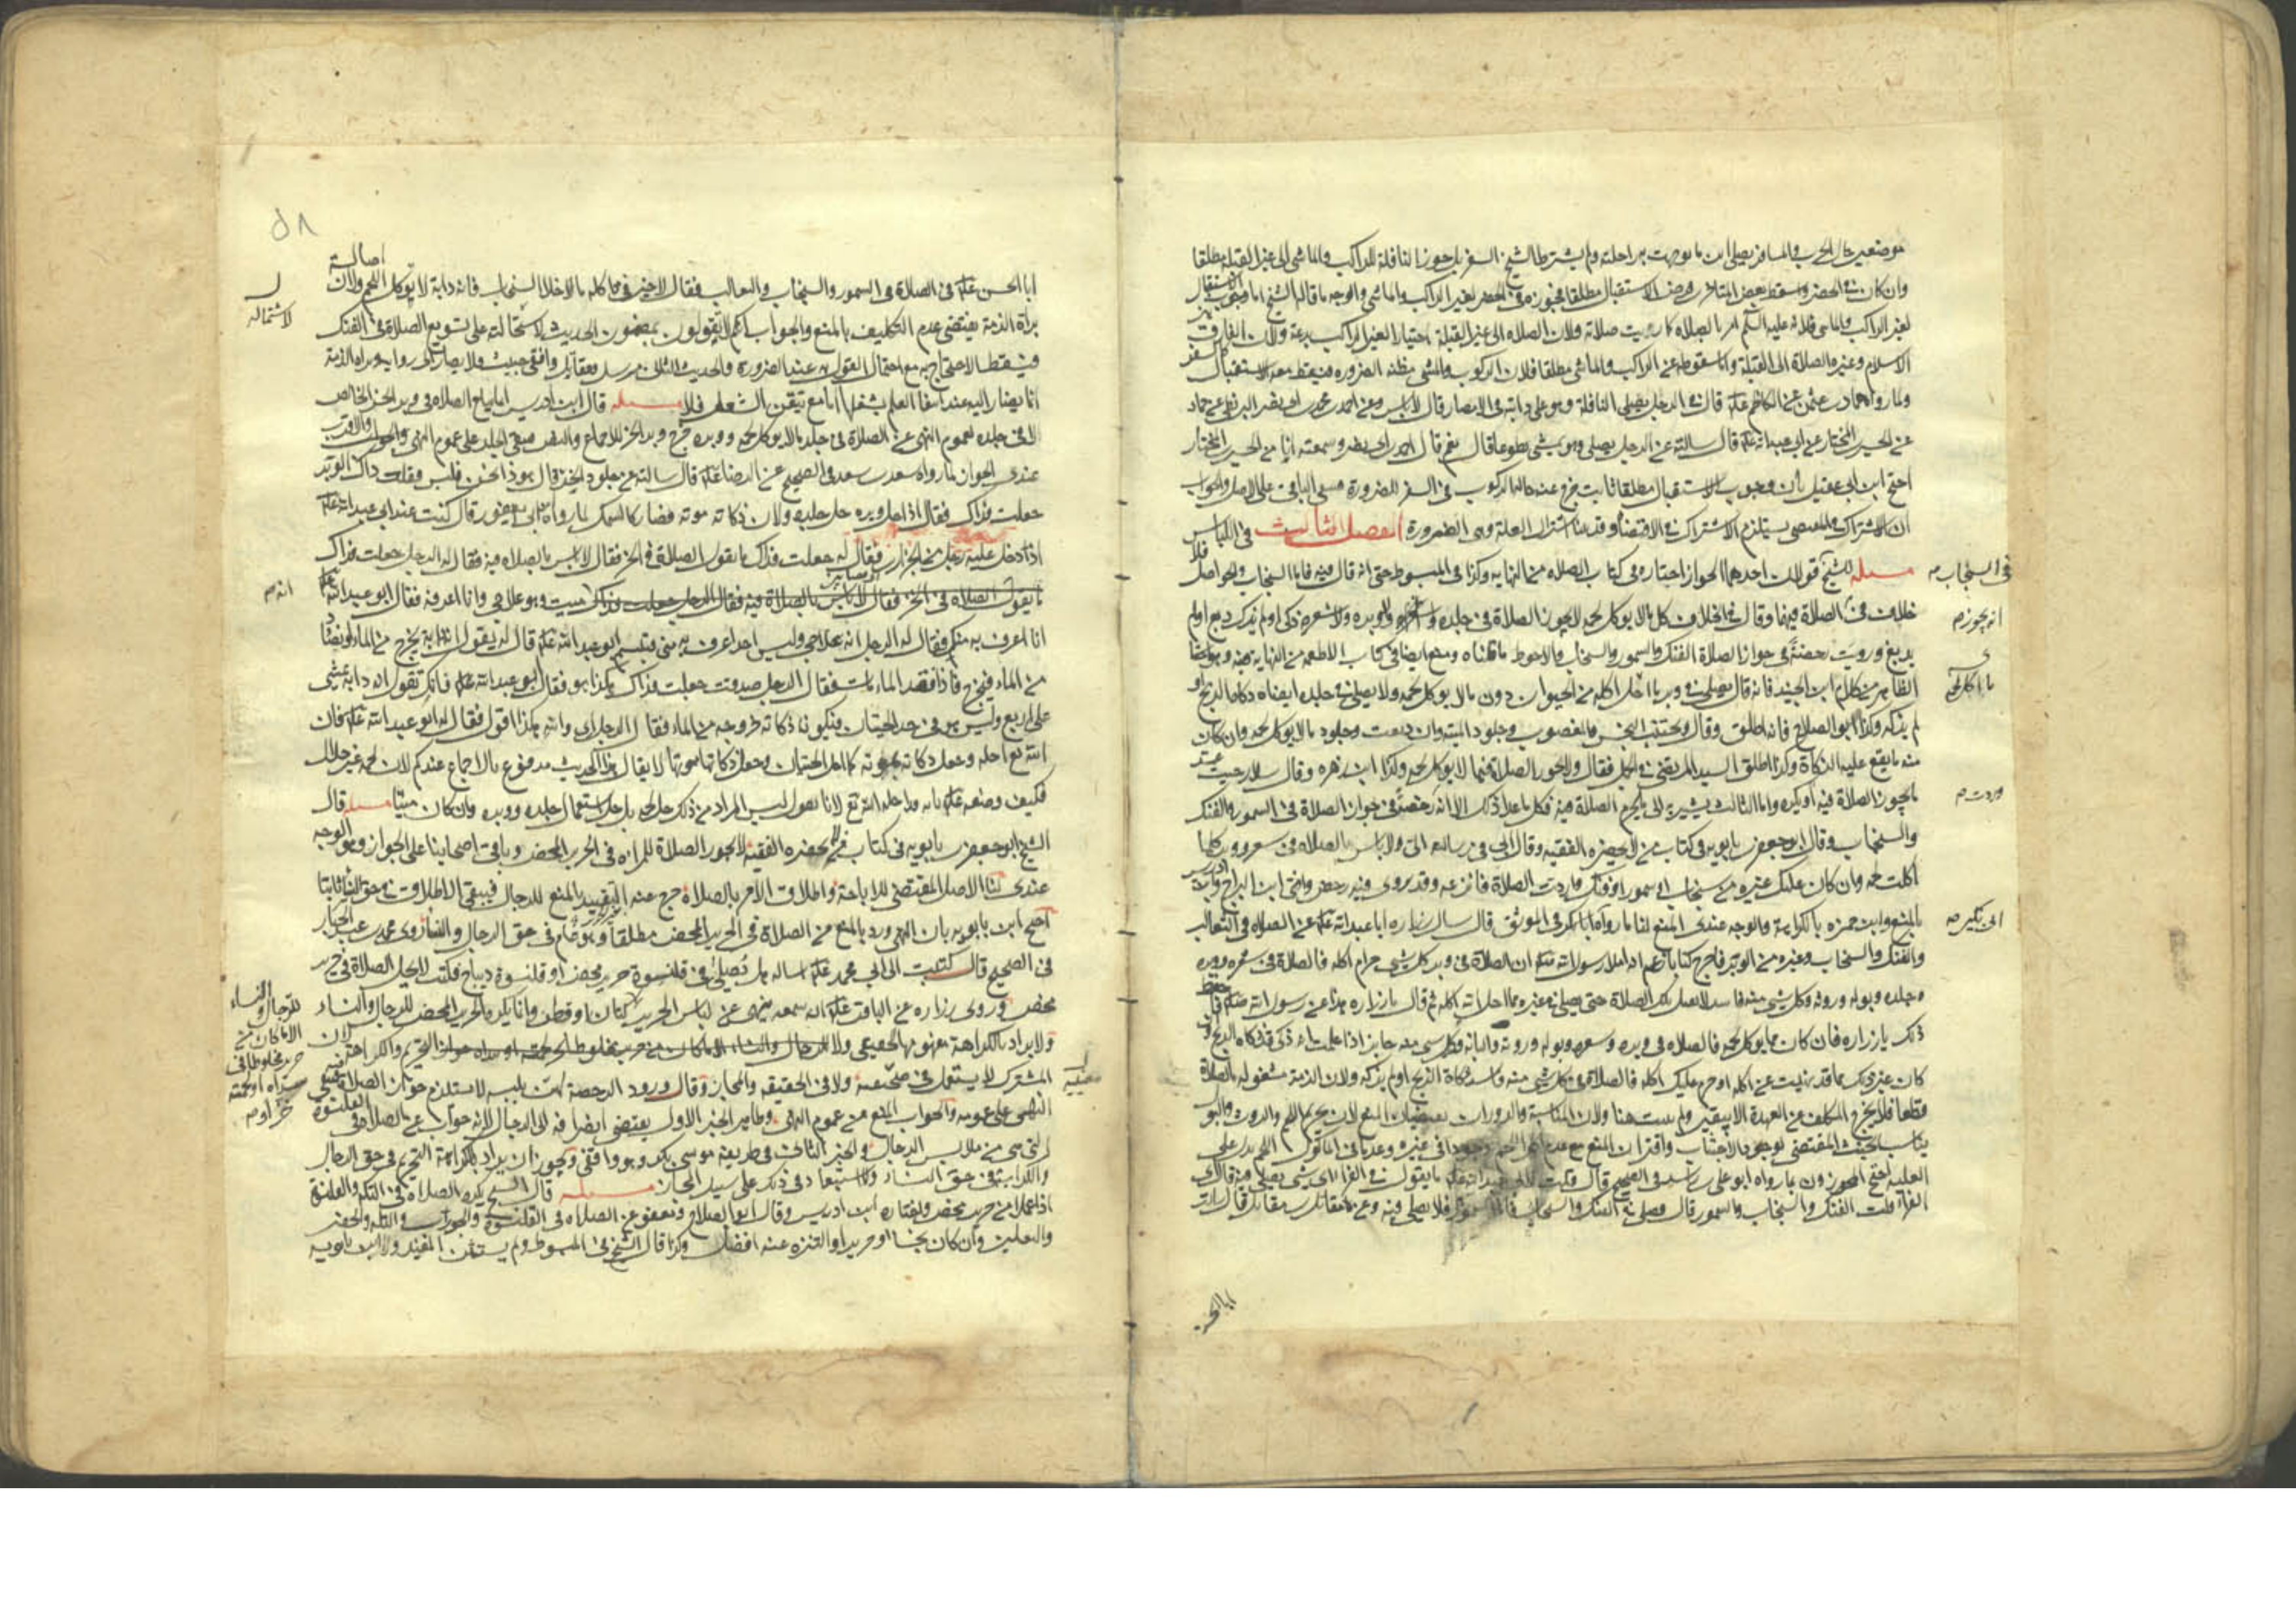 موضعين حال الحرب والمسافر يصلي اين ما توجهت به راحلته ولم يشترط الشيخ السفر بل جوز النافلة للراكب والماشي الى غير القبلة مطلقا
وان كان في الحضر واسقط بعض المتاخرين فرض الاستقبال مطلقا فجوزه في الحضر لغير الراكب والماشي والوجه ما قاله الشيخ اما وجوب الاستقبال
لغير الراكب والماشي فلانه عليه السلم امر بالصلاة كما رويت صلاته ولان الصلاة الى غير القبلة اختيارا لغير الراكب بدعة ولان الفارق بين
الاسلام وغيره الصلاة الى القبلة واما سقوطه عن الراكب والماشي مطلقا فلان الركوب والمشي مظنة الضرورة فيسقط معه الاستقبال كالسفر
ولما رواه حماد بن عثمن عن الكاظم عليه قال في الرجل يصلي النافلة وهو على دابته في الامصار قال لا باس وعن احمد بن محمد بن ابي نصر البزنطي عن حماد
عن الحسين المختار عن ابي عبد الله عليه قال سالته عن الرجل يصلي وهو يمشي تطوعا قال نعم قال احمد بن ابي نصر وسمعته انا من الحسين المختار
احتج ابن ابي عقيل بان وجوب الاستقبال مطلقا ثابت خرج عنه حالة الركوب في السفر للضرورة فيبقى الباقي على الاصل والجواب
ان الاشتراك في المقتضي يستلزم الاشتراك في الاقتضاء وقد بينا اشتراك العلة وهي الضرورة الفصل الثالث في اللباس
مسئلة للشيخ قولان احدهما الجواز اختاره في كتاب الصلاة من النهاية وكذا في المبسوط حتى انه قال فيه فاما السنجاب والحواصل فلا
في السنجاب م
خلاف في الصلاة فيهما وقال في الخلاف كل ما لا يوكل لحمه لا يجوز الصلاة في جلده ولا وبره ولا شعره ذكي او لم يذكى دبغ او لم
انه يجوز م
يدبغ ورويت رخصة في جواز الصلاة الفنك والسمور والسنجاب والاحوط ما قلناه ومنع ايضا في كتاب الاطعمة من النهاية منه وهو ايضا
الظاهر من كلام ابن الجنيد فانه قال يصلي في وبر ما احل اكله من الحيوان دون ما لا يوكل لحمه ولا يصلي في جلده ايضا ذكاه الذبح او
ما اكل لحمه
لم يذكه وكذا ابو الصلاح فانه اطلق وقال ويجتنب النجس والمغصوب وجلود الميتة وان دبغت وجلود ما لا يوكل لحمه وان كان
منه ما يقع عليه الذكاة وكذا اطلق السيد المرتضى في الجمل فقال ولا يجوز الصلاة فيما لا يوكل لحمه وكذا ابن زهره وقال سلار حيث عد
ما يجوز الصلاة فيه او يكره واما الثالث يشير به الى ما يحرم الصلاة فيه فكل ما عدا ذلك الا انه رخص في جواز الصلاة في السمور والفنك
وردت م
والسنجاب وقال ابو جعفر بن بابويه في كتاب من لا يحضره الفقيه وقال ابي في رسالته الي ولا باس بالصلاة في شعر ووبر كلما
اكلت لحمه وان كان عليك غيره من سنجاب او سمور او فنك واردت الصلاة فانزعه وقد يروى فيه رخص وافتى ابن البراج وابن ادريس
بالمنع وابن حمزه بالكراهة والوجه عندي المنع لنا ما رواه ابن بكير في الموثق قال سال زراره ابا عبد الله عليه عن الصلاة في الثعالب
ابن بكير صه
والفنك والسنجاب وغيره من الوبر فاخرج كتابا زعم انه املاء رسول الله صلى ان الصلاة في وبر كل شيء حرام اكله فالصلاة في شعره ووبره
وجلده وبوله وروثه وكل شيء منه فاسد لا يقبل تلك الصلاة حتى يصلي في غيره مما احل الله اكله ثم قال يا زراره هذا عن رسول الله صلى فاحفظ
ذلك يا زراره فان كان مما يوكل لحمه فالصلاة في وبره وشعره وبوله وروثه والبانه وكل شيء منه جايز اذا علمت انه ذكي قد ذكاه الذبح وان
كان غير ذلك مما قد نهيت عن اكله او حرم عليك اكله فالصلاة في كل شيء منه فاسد ذكاه الذبح او لم يذكه ولان الذمة مشغولة بالصلاة
قطعا فلا يخرج المكلف عن العهدة الا بيقين ولم يثبت هنا ولان المناسبة والدوران يقتضيان المنع لان تحريم اللحم والروث والبول
يناسب الخبث المقتضي لوجود الاجتناب واقتران المنع مع عدم
العلية احتج المجوزون بما رواه ابو علي بن راشد في الصحيح قال قلت لابي عبد الله عليه ما يقول في الفراء اي شيء يصلي فيه قال اي
الفراء قلت الفنك والسنجاب والسمور قال فصلي في الفنك والسنجاب فاما السمور فلا يصلي فيه وعن مقاتل بن مقاتل قال سالت
ابا الحسن
٥٨
ابا الحسن عليه عن الصلاة في السمور والسنجاب والثعالب فقال لا خير في ذا كله ما لا خلا السنجاب فانه دابة لا يوكل اللحم ولان اصالة
براءة الذمة يقتضي عدم التكليف بالمنع والجواب انكم لا تقولون بمضمون الحديث لاشتماله على تسويغ الصلاة في الفنك
لاشتماله
فيسقط الاحتجاج به مع احتمال القول به عند الضرورة والحديث الثاني مرسل ومقاتل واقفي خبيث ولا يصار الى روايته وبراءة الذمة
انما يصار اليه عند انتفاء العلم بشغلها اما مع تيقن الشغل فلا مسئلة قال ابن ادريس انما يباح الصلاة في وبر الخز الخالص
لا في جلده لعموم النهي عن الصلاة في جلد ما لا يوكل لحمه ووبره خرج وبر الخز للاجماع والنص فيبقى الجلد على عموم النهي والاقرب
عندي الجواز لما رواه سعد بن سعد في الصحيح عن الرضا عليه قال سالته عن جلود الخز قال هوذا نحن نلبس فقلت ذاك الوبر
جعلت فداك فقال اذا حل وبره حل جلده ولان ذكاته موته فصار كالسمك لما رواه ابن ابي يعفور قال كنت عند ابي عبد الله عليه
اذا دخل عليه رجل من الخزازين فقال له جعلت فداك ما يقول الصلاة في الخز فقال لا باس بالصلاة فيه فقال له الرجل جعلت فداك
ما يقول الصلاة في الخز فقال لا باس بالصلاة فيه فقال الرجل جعلت فداك ميت وهو علاجي وانا اعرفه فقال ابو عبد الله عليه
انه م
انا اعرف به منك فقال له الرجل انه علاجي وليس احد اعرف به مني فتبسم ابو عبد الله عليه ثم قال له يقول انه دابة يخرج من الماء او يصاد
من الماء فيخرج فاذا فقد الماء مات فقال الرجل صدقت جعلت فداك هكذا هو فقال ابو عبد الله عليه فانك تقول انه دابة يمشي
على اربع وليس هو في حد الحيتان فيكون ذكاته خروجه من الماء فقال الرجل اي والله هكذا اقول فقال له ابو عبد الله عليه فان
الله تع احله وجعل ذكاته موته كما احل الحيتان وجعل ذكاتها موتها لا يقال هذا الحديث مدفوع بالاجماع عندكم لان لحمه غير حلال
فكيف وصفه عليه بانه قد احله الله تع لانا نقول ليس المراد من ذلك حل لحمه بل حل استعمال جلده ووبره وان كان ميتا مسئلة قال
الشيخ ابو جعفر بن بابويه في كتاب من لا يحضره الفقيه لا يجوز الصلاة للمراة في الحرير المحض وباقي اصحابنا على الجواز وهو الوجه
عندي لنا الاصل المقتضي للاباحة واطلاق الامر بالصلاة خرج عنه التقييد بالمنع للرجال فيبقى الاطلاق في حق النساء ثابتا
احتج ابن بابويه بان النهي ورد بالمنع من الصلاة في الحرير المحض مطلقا وهو عام في حق الرجال والنساء روى محمد بن عبد الجبار
في الصحيح قال كتبت الى ابي محمد عليه اساله هل يصلى في قلنسوة حرير محض او قلنسوة ديباج فكتب لا يحل الصلاة في حرير
محض وروى زراره عن الباقر عليه انه سمعه ينهى عن لباس الحرير كتان او قطن وانما يكره الحرير المحض للرجال والنساء
للرجال والنساء
الا ما كان من
حرير مخلوط في
سداه او لحمته
خز او م
ولا يراد بالكراهة مفهومها الحقيقي ولا الرجال والنساء الا ما كان من حرير مخلوط لحمته او سداه جواز التحريم والكراهة لان
المشترك لا يستعمل في ولا في الحقيقة والمجاز وقال ورود الرخصة لهن بلبسه لا يستلزم جواز الصلاة فيبقى
النهي على عمومه والجواب المنع من عموم النهي ولما مر الخبر الاول يقتضي انصرافه الى الرجال لانه جواب عن الصلاة في القلنسوة
التي هي من ملابس الرجال والخبر الثاني في طريقه موسى بن بكر وهو واقفي ويجوز ان يراد بالكراهة التحريم في حق الرجال
والكراهة في حق النساء ولا استبعاد في ذلك على سبيل المجاز مسئلة قال الشيخ يكره الصلاة في التكة والقلنسوة
اذا عملا من حرير محض واختاره ابن ادريس وقال ابو الصلاح ومعفو عن الصلاة في القلنسوة والجورب والتكة والخف
والنعلين وان كان نجسا او حريرا والتنزه عنه افضل وكذا قال الشيخ في المبسوط ولم يستثن المفيد ولا ابن بابويه